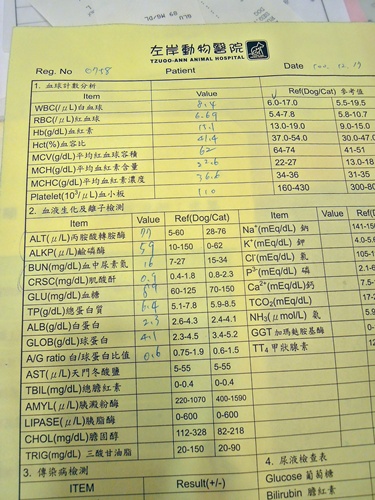 左岸動物醫院
TZUOO-ANN ANIMAL HOSPITAL
Reg. No 0718 Patient Date 100.12.19
1. 血球計數分析
Item Value Ref(Dog/Cat) 參考值
WBC(/μL)白血球 8.4 6.0-17.0 5.5-19.5
RBC(/μL)紅血球 6.69 5.4-7.8 5.8-10.7
Hb(g/dL)血紅素 15.1 13.0-19.0 9.0-15.0
Hct(%)血容比 41.4 37.0-54.0 30.0-47.0
MCV(g/dL)平均紅血球容積 62 64-74 41-51
MCH(g/dL)平均紅血球血紅素含量 22.6 22-27 13.0-18
MCHC(g/dL)平均紅血球血紅素濃度 36.6 34-36 31-35
Platelet(10³/μL)血小板 110 160-430 300-80
2. 血液生化及離子檢測
Item Value Ref(Dog/Cat) Item Value
ALT(μ/L)丙胺酸轉胺酶 77 5-60 28-76 Na⁺(mEq/dL) 鈉 141-15
ALKP(μ/L)鹼磷酶 59 10-150 0-62 K⁺(mEq/dL) 鉀 4.0-5.
BUN(mg/dL)血中尿素氮 16 7-27 15-34 Cl⁻(mEq/dL) 氯 105-1
CRSC(mg/dL)肌酸酐 0.9 0.4-1.8 0.8-2.3 P³⁻(mEq/dL) 磷 2.1-6
GLU(mg/dL)血糖 89 60-125 70-150 Ca²⁺(mg/dL)鈣
TP(g/dL)總蛋白質 6.4 5.1-7.8 5.9-8.5 TCO₂(mEq/dL) 17-2
ALB(g/dL)白蛋白 2.3 2.6-4.3 2.4-4.1 NH₃(μmol/L) 氨
GLOB(g/dL)球蛋白 4.1 2.3-4.5 3.4-5.2 GGT 加瑪麩胺基酶 0-
A/G ratio 白/球蛋白比值 0.6 0.75-1.9 0.6-1.5 TT₄甲狀腺素 12
AST(μ/L)天門冬酸鹽 5-55 5-55
TBIL(mg/dL)總膽紅素 0-0.4 0-0.4
AMYL(μ/L)胰澱粉酶 220-1070 400-1590
LIPASE(μ/L)胰脂酶 0-600 0-600
CHOL(mg/dL)膽固醇 112-328 82-218
TRIG(mg/dL) 三酸甘油脂 20-150 20-90
3. 傳染病檢測 4. 尿液檢查表
ITEM Result(+/-) Glucose 葡萄糖
Bilirubin 膽紅素